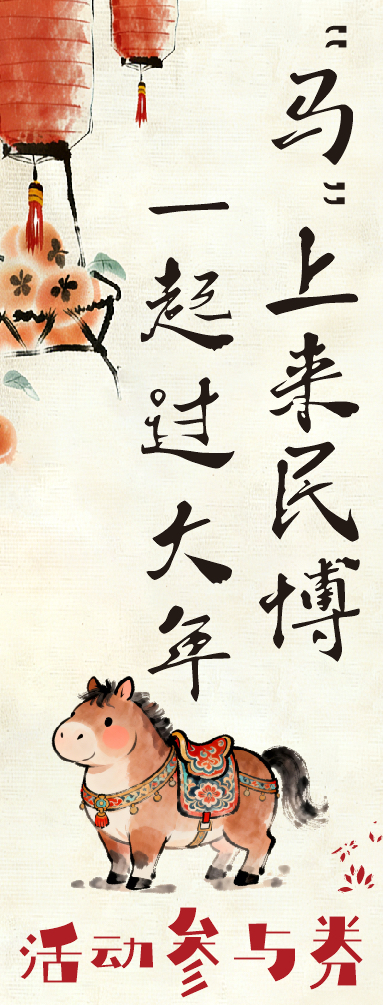 “马”上来民博
一起过大年
活动参与券